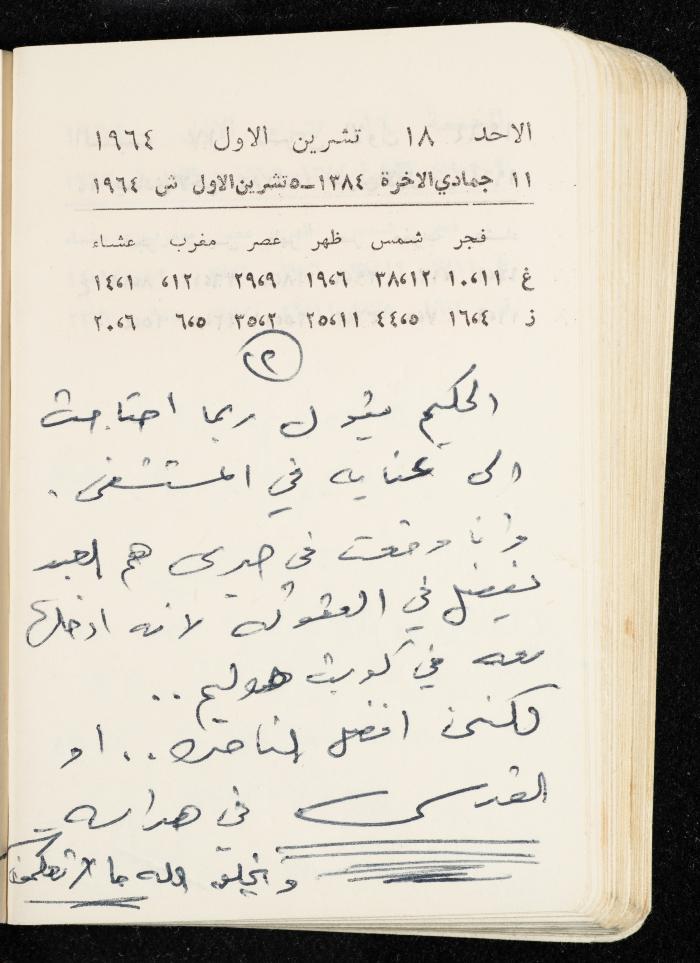 الاحد ١٨ تشرين الاول ١٩٦٤
١١ جمادي الاخرة ١٣٨٤ــ٥ تشرين الاول ش ١٩٦٤
فجر شمس ظهر عصر مغرب عشاء
غ ١٠،١١ ٣٨،١٢ ١٩،٦ ٢٩،٩ ،١٢ ١٤،١
ز ١٦،٤ ٤٤،٥ ٢٥،١١ ٣٥،٢ ٦،٥ ٢٠،٦
٢٢
الحكيم يقول ربما احتاجت
الى عنايه في المستشفى .
وانا وقعت في هم العبد
يفضل في لانه ادخلها
معه في كوبت هوليم ..
لكنى افضل الناصره .. او
القدس في هداسه
ويخلق الله ما لا تعلمون